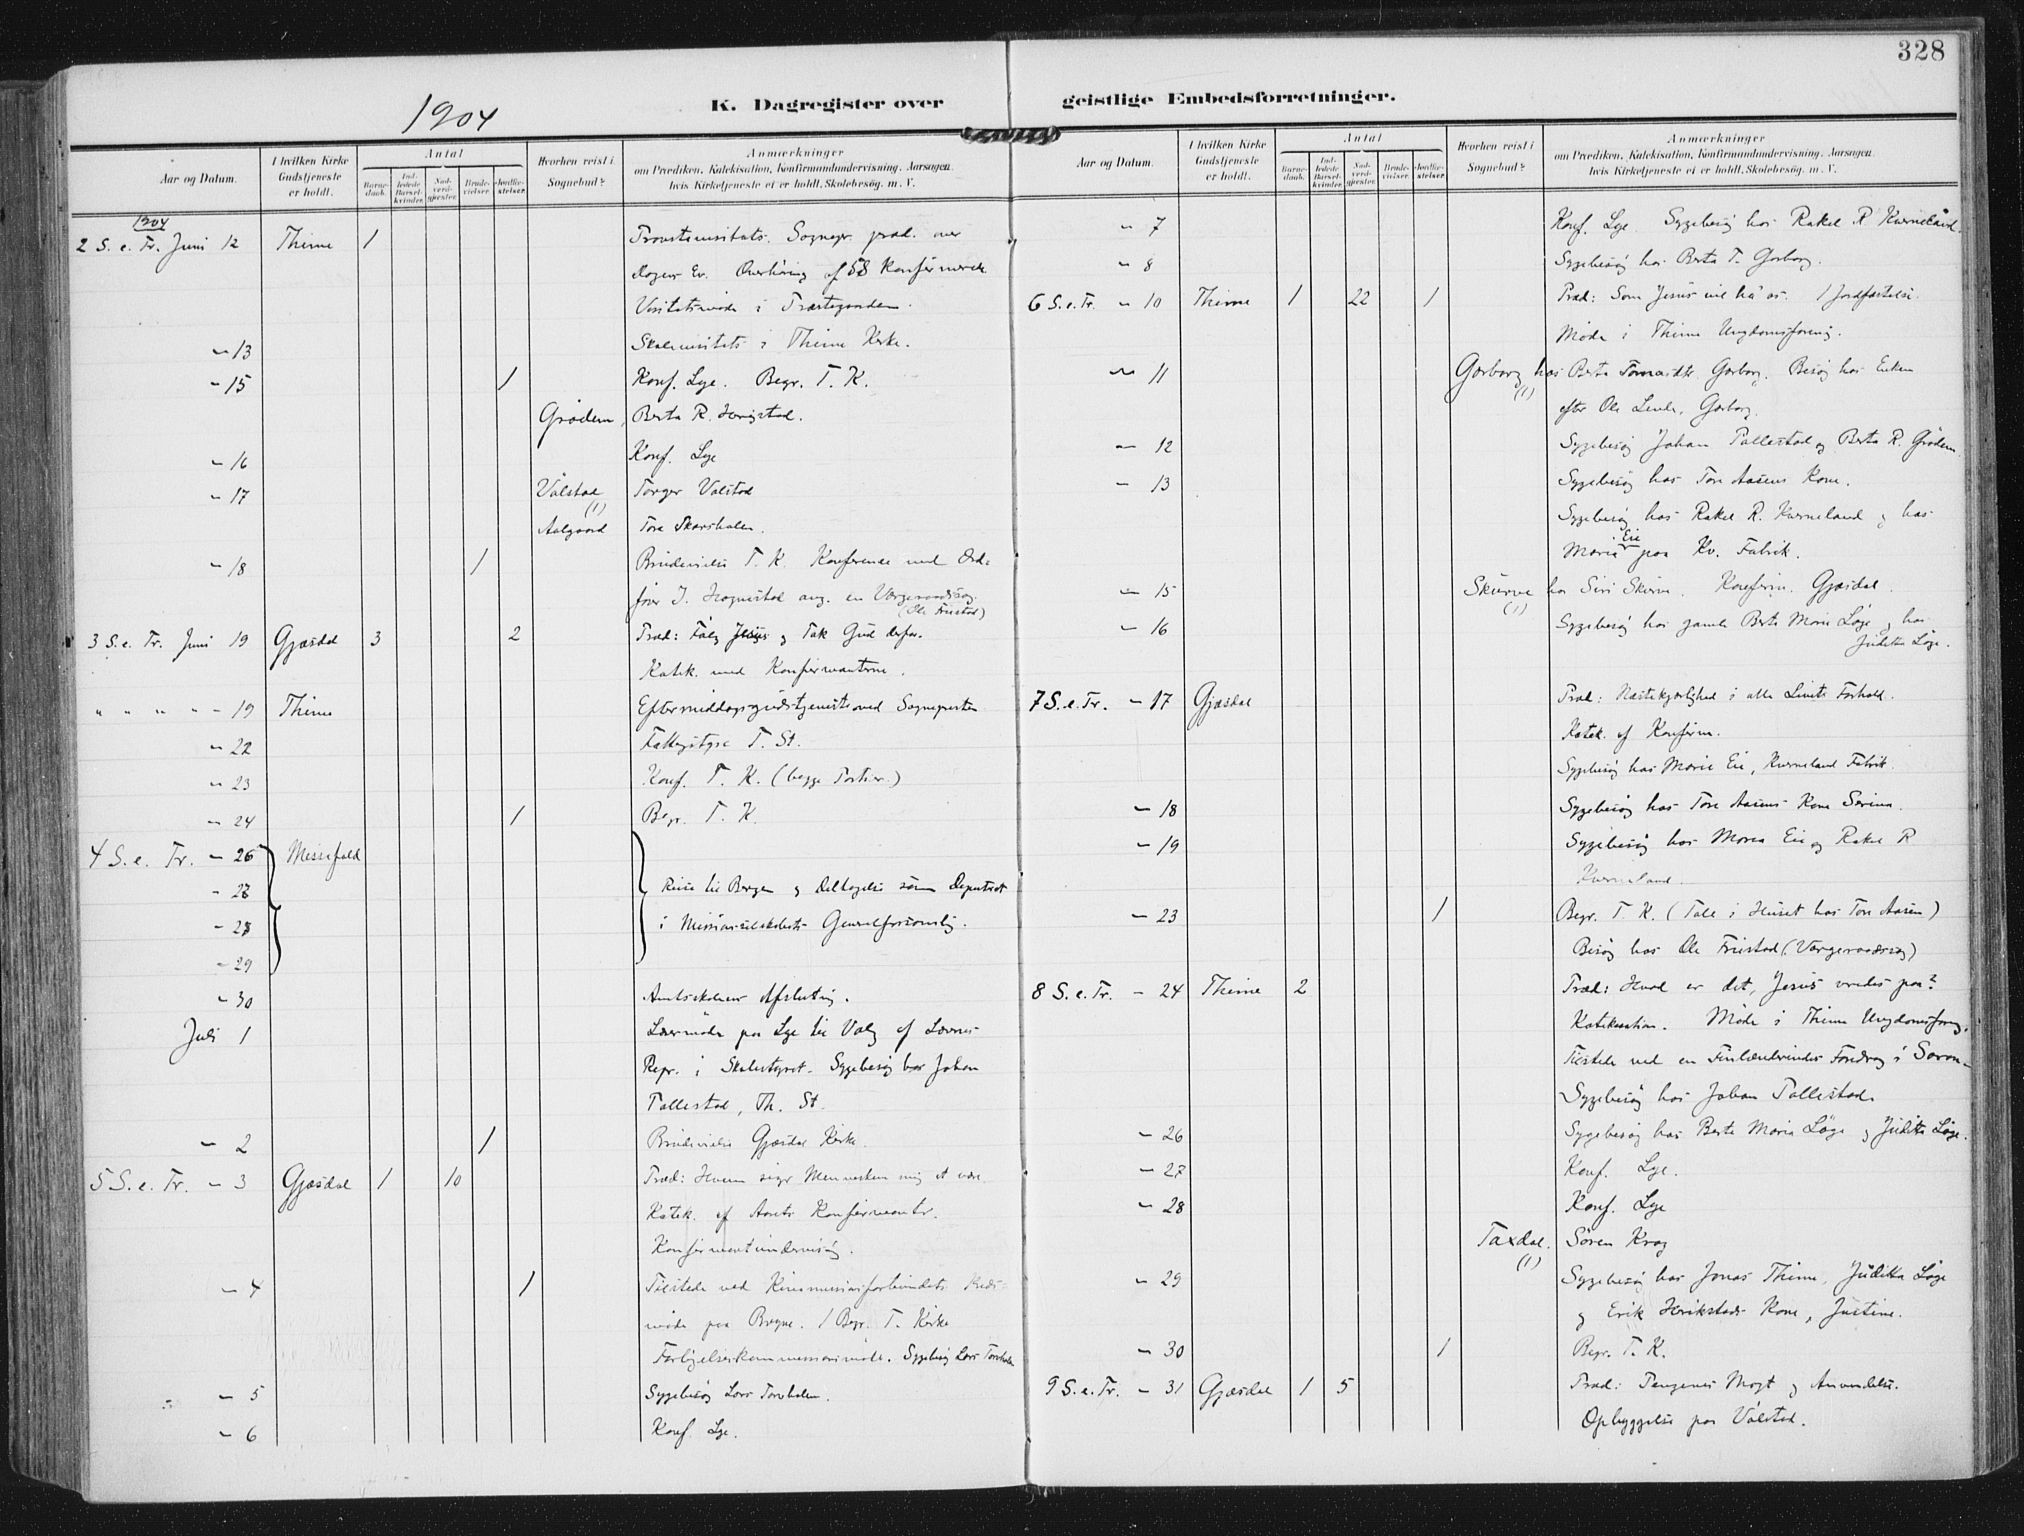 328
1904
K. Dagregister over geistlige Embedsforretninger.
Aar og Datum.
I hvilken Kirke Gudstjeneste er holdt.
Antal
Barnedaab.
Indledede Barselkvinder.
Nadverdgjester.
Brudevielser.
Jordfæstelser.
Hvorhen reist i Sognebud?
Anmærkninger
om Prædiken, Katekisation, Konfirmandundervisning, Aarsagen, hvis Kirketjeneste ei er holdt, Skolebesøg. m. V.
1904
2 S. e. Tr. Juni 12 Thime 1 Provstevisitats. Sognepr. præd. over
dagens Ev. Overhöring af 58 Konfirmerede
Visitatsmöde i Præstegaarden.
" 13 Skolevisitats i Thime Kirke.
" 15 1 Konf. Lye. Begr. T. K.
Grödem, Berta R.
" 16 Konf. Lye
" 17 Válstad (1) Torger Valstad
Aalgaard Tore
" 18 1 Brudevielse T. K. Konferense med Ord-
förer J. Hognestad ang. en Vergeraadssag.
(Ole Fristad)
3 S. e. Tr. Juni 19 Gjæsdal 3 2 Præd: Fölg Jesus og Tak Gud derfor.
Katek. med Konfirmanterne.
" " " " - 19 Thime Eftermiddagsgudstjeneste ved Sognepresten
" 22 Fattigstyre T. St.
" 23 Konf. T. K. (begge Partier.)
" 24 1 Begr. T. K.
4 S. e. Tr. - 26 Messefald
- 27 Reise til Bergen og Deltagelse som Deputeret
- 28 i Missionsselskabets Generalforsamling.
- 29
- 30 Amtsskolens Afslutning.
Juli 1 Lærermöde paa Lye til Valg af Lærernes
Repr. i Skolestyret. Sygebesög hos Johan
Tallestad, Th. St.
- 2 1 Brudevielse Gjæsdal Kirke.
5 S. e. Tr. - 3 Gjæsdal 1 10 Præd: Hvem siger Menneskene mig at være
Katek. af Aarets Konfirmanter.
Konfirmantundervisning.
- 4 1 Tilstede ved Kinamissionsforbundets Kreds-
möde paa Bryne. 1 Begr. T. Kirke
Forligelseskommissionsmöde. Sygebesög Lars
- 5 Sygebesög Lars
- 6 Konf. Lye.
Aar og Datum.
I hvilken Kirke Gudstjeneste er holdt.
Antal
Barnedaab.
Indledede Barselkvinder.
Nadverdgjester.
Brudevielser.
Jordfæstelser.
Hvorhen reist i Sognebud?
Anmærkninger
om Prædiken, Katekisation, Konfirmandundervisning, Aarsagen, hvis Kirketjeneste ei er holdt, Skolebesög. m. V.
" 7 Konf. Lye Sygebesög hos Rakel R Kverneland.
" 8 Sygebesög hos Berta T. Garborg.
6 S. e. Tr. " 10 Thime 1 22 1 Præd: Som Jesus vil ha' os. 1 Jordfæstelse.
Möde i Thime Ungdomsforening.
" 11 Garborg (1) hos Berta Tormodsdtr. Garborg. Besög hos Enken
efter Ole Garborg.
- 12 Sygebesög Johan Tallestad og Berta R. Grödem.
- 13 Sygebesög hos Tore Aasens Kone.
Sygebesög hos Rakel R. Kverneland og hos
Maria Eie paa Kv. Fabrik.
- 15 Skurve (1) hos Siri Skurve. Konfirm. Gjæsdal.
- 16 Sygebesög hos gamle Berte Marie Löge og hos
Juditta Löge.
7 S. e. Tr. - 17 Gjæsdal Præd: Næstekjærlighed i alle Livets Forhold.
Katek. af Konfirm.
Sygebesög hos Marie Eie, Kverneland Fabrik.
- 18 Sygebesög hos Tore Aasens Kone Serina.
- 19 Sygebesög hos Maria Eie og Rakel R
Kverneland.
- 23 1 Begr. T. K. (Tale i Huset hos Tore Aasen)
Besög hos Ole Fristad (Vergeraadssag)
8 S. e. Tr. - 24 Thime 2 Præd: Hvad er det, Jesus vredes paa?
Katekisation. Möde i Thime Ungdomsforening.
Tilstede ved en Finlænderindes Foredrag i
Sygebesög hos Johan Tallestad.
- 26 Sygebesög hos Berte Maria Löge og Juditta Löge.
- 27 Konf. Lye.
- 28 Konf. Lye
Taxdal. (1) Sören Krag
- 29 Sygebesög hos Jonas Thime, Juditta Löge
og Erik Kone, Justine.
- 30 1 Begr. T. K.
9 S. e. Tr. - 31 Gjæsdal 1 5 Præd: Pengenes Magt og Anvendelse.
Opbyggelse paa Válstad.